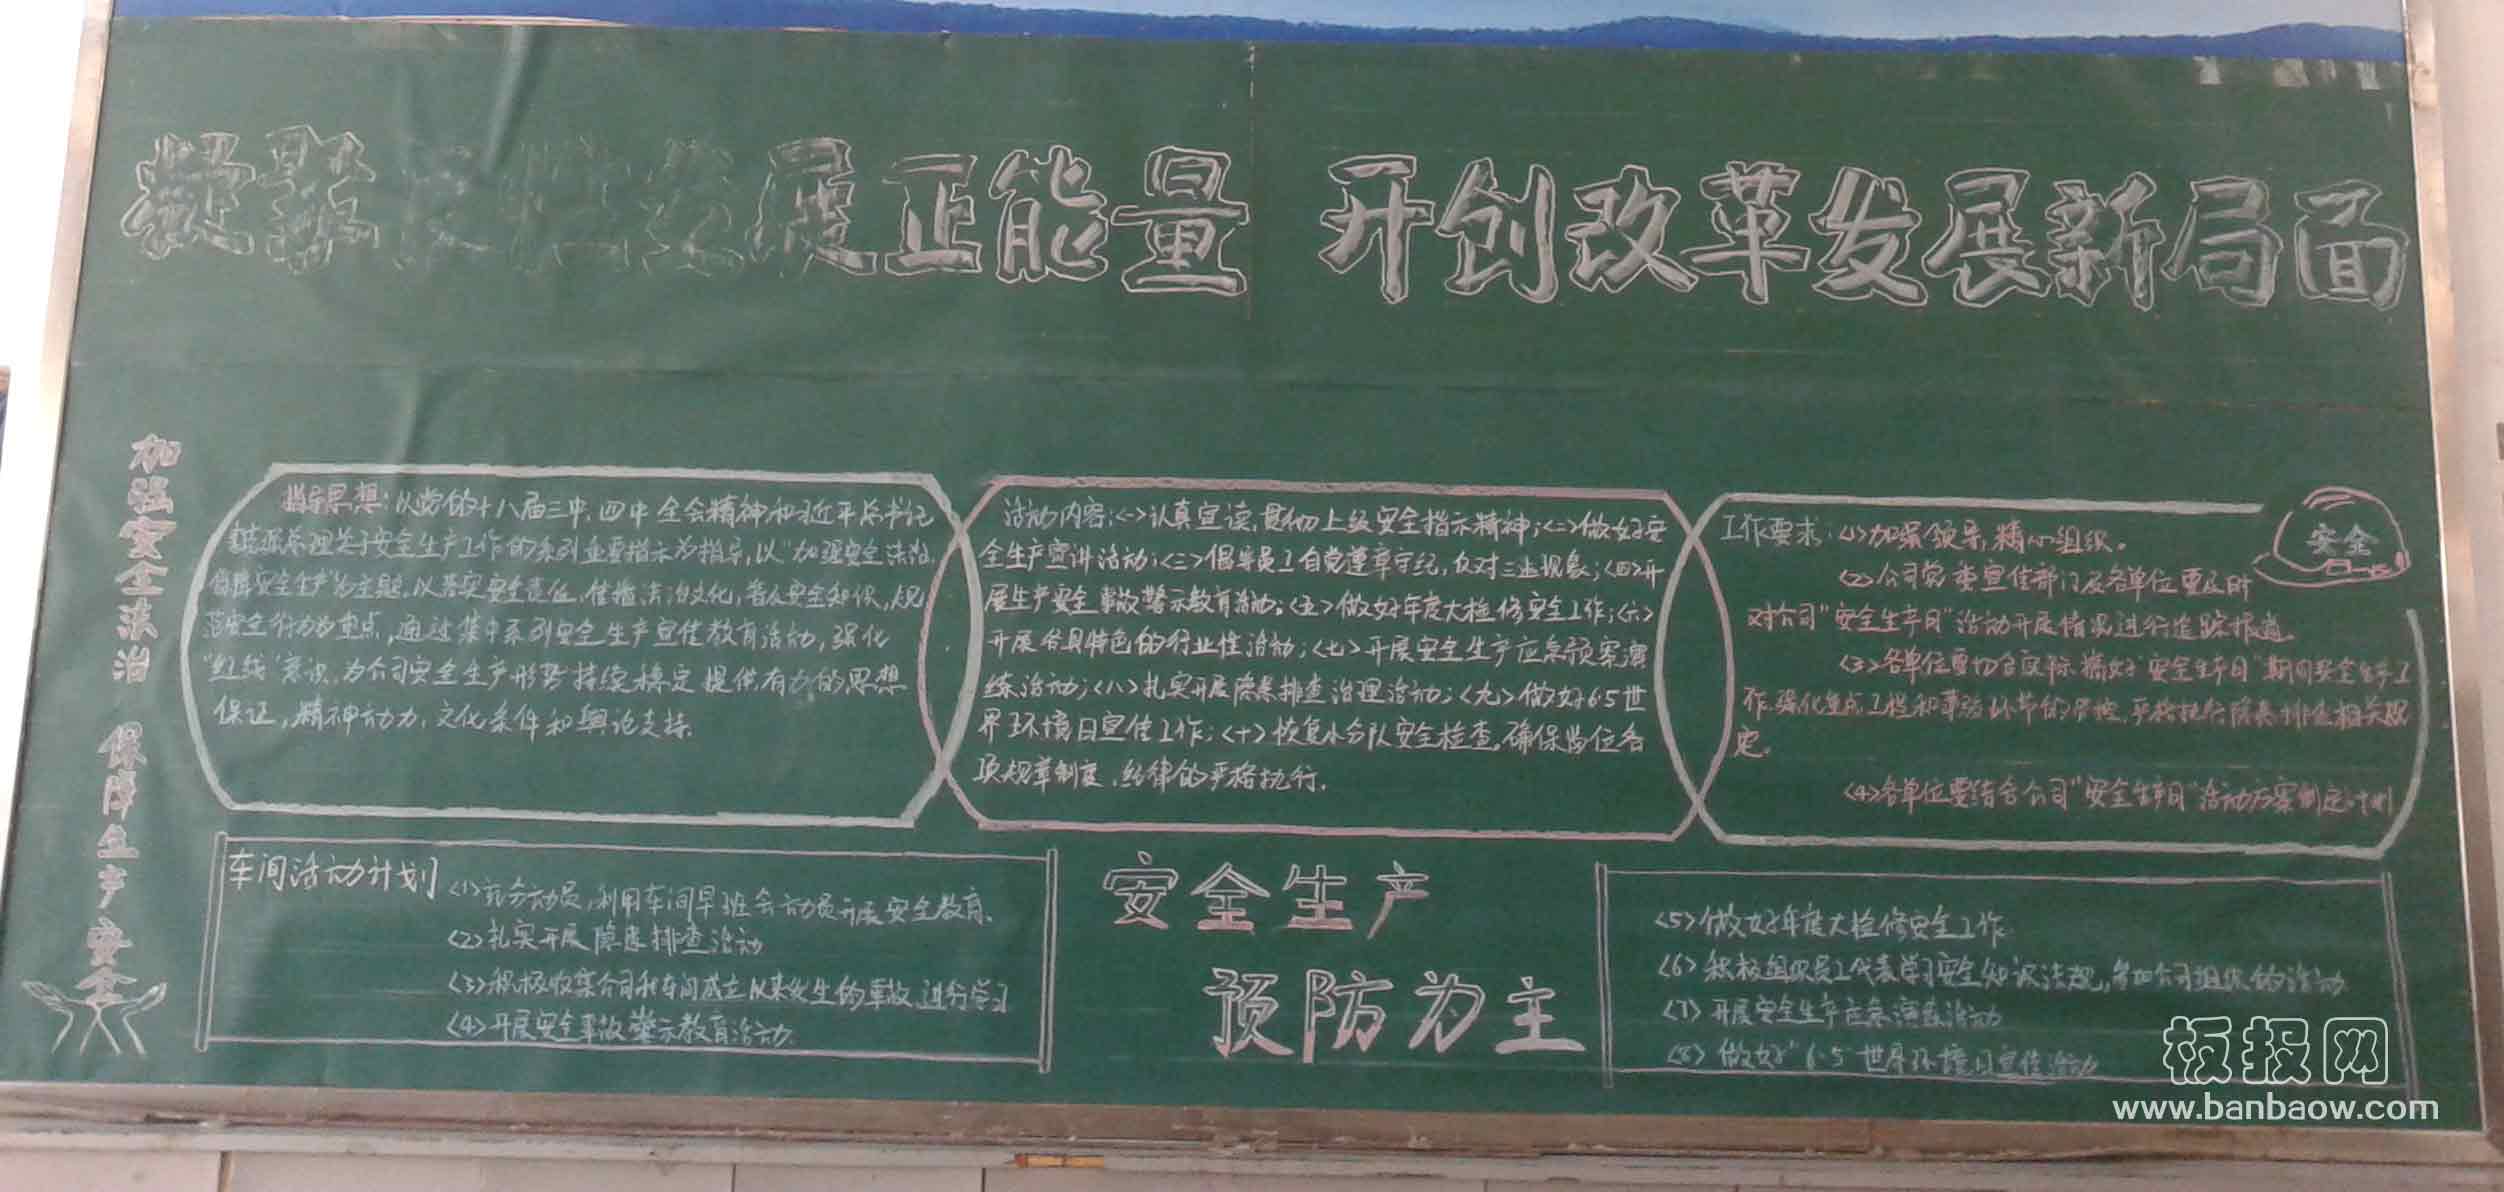 凝聚 展正能量 开创改革发展新局面
加强安全法治 保障生产安全
指导思想:以党的十八届三中、四中全会精神和习近平总书记
总理关于安全生产工作的系列重要指示为指导,以"加强安全法治、
保障安全生产"为主题,以落实安全责任,传播法治文化,普及安全知识,规
范安全行为为重点,通过集中系列安全生产宣传教育活动,强化
"红线"意识,为公司安全生产形势持续稳定提供有力的思想
保证,精神动力,文化条件和舆论支持。
活动内容:<一>认真宣读,贯彻上级安全指示精神;<二>做好安
全生产宣讲活动;<三>倡导员工自觉遵章守纪,反对三违现象;<四>开
展生产安全事故警示教育活动。<五>做好年度大检修安全工作;<六>
开展各具特色的行业性活动;<七>开展安全生产应急预案演
练活动;<八>扎实开展隐患排查治理活动;<九>做好6·5世
界环境日宣传工作;<十>恢复小分队安全检查,确保岗位各
项规章制度,纪律的严格执行.
工作要求:<1>加强领导,精心组织。
<2>公司党委宣传部门及各单位要及时
对公司"安全生产月"活动开展情况进行追踪报道。
<3>各单位要切合实际,搞好"安全生产月"期间安全生产工
作,强化重点工程和薄弱环节的管控,严格执行隐患排查相关规
定。
<4>各单位要结合公司"安全生产月"活动方案制定计划
安全
车间活动计划
<1>充分动员,利用车间早班会动员开展安全教育.
<2>扎实开展隐患排查活动
<3>积极收集公司和车间成立以来发生的事故,进行学习
<4>开展安全事故警示教育活动.
安全生产
预防为主
<5>做好年度大检修安全工作
<6>积极组织员工代表学习安全知识法规,参加公司组织的活动
<7>开展安全生产应急演练活动
<8>做好"6·5世界环境日宣传活动
板报网
www.banbaow.com